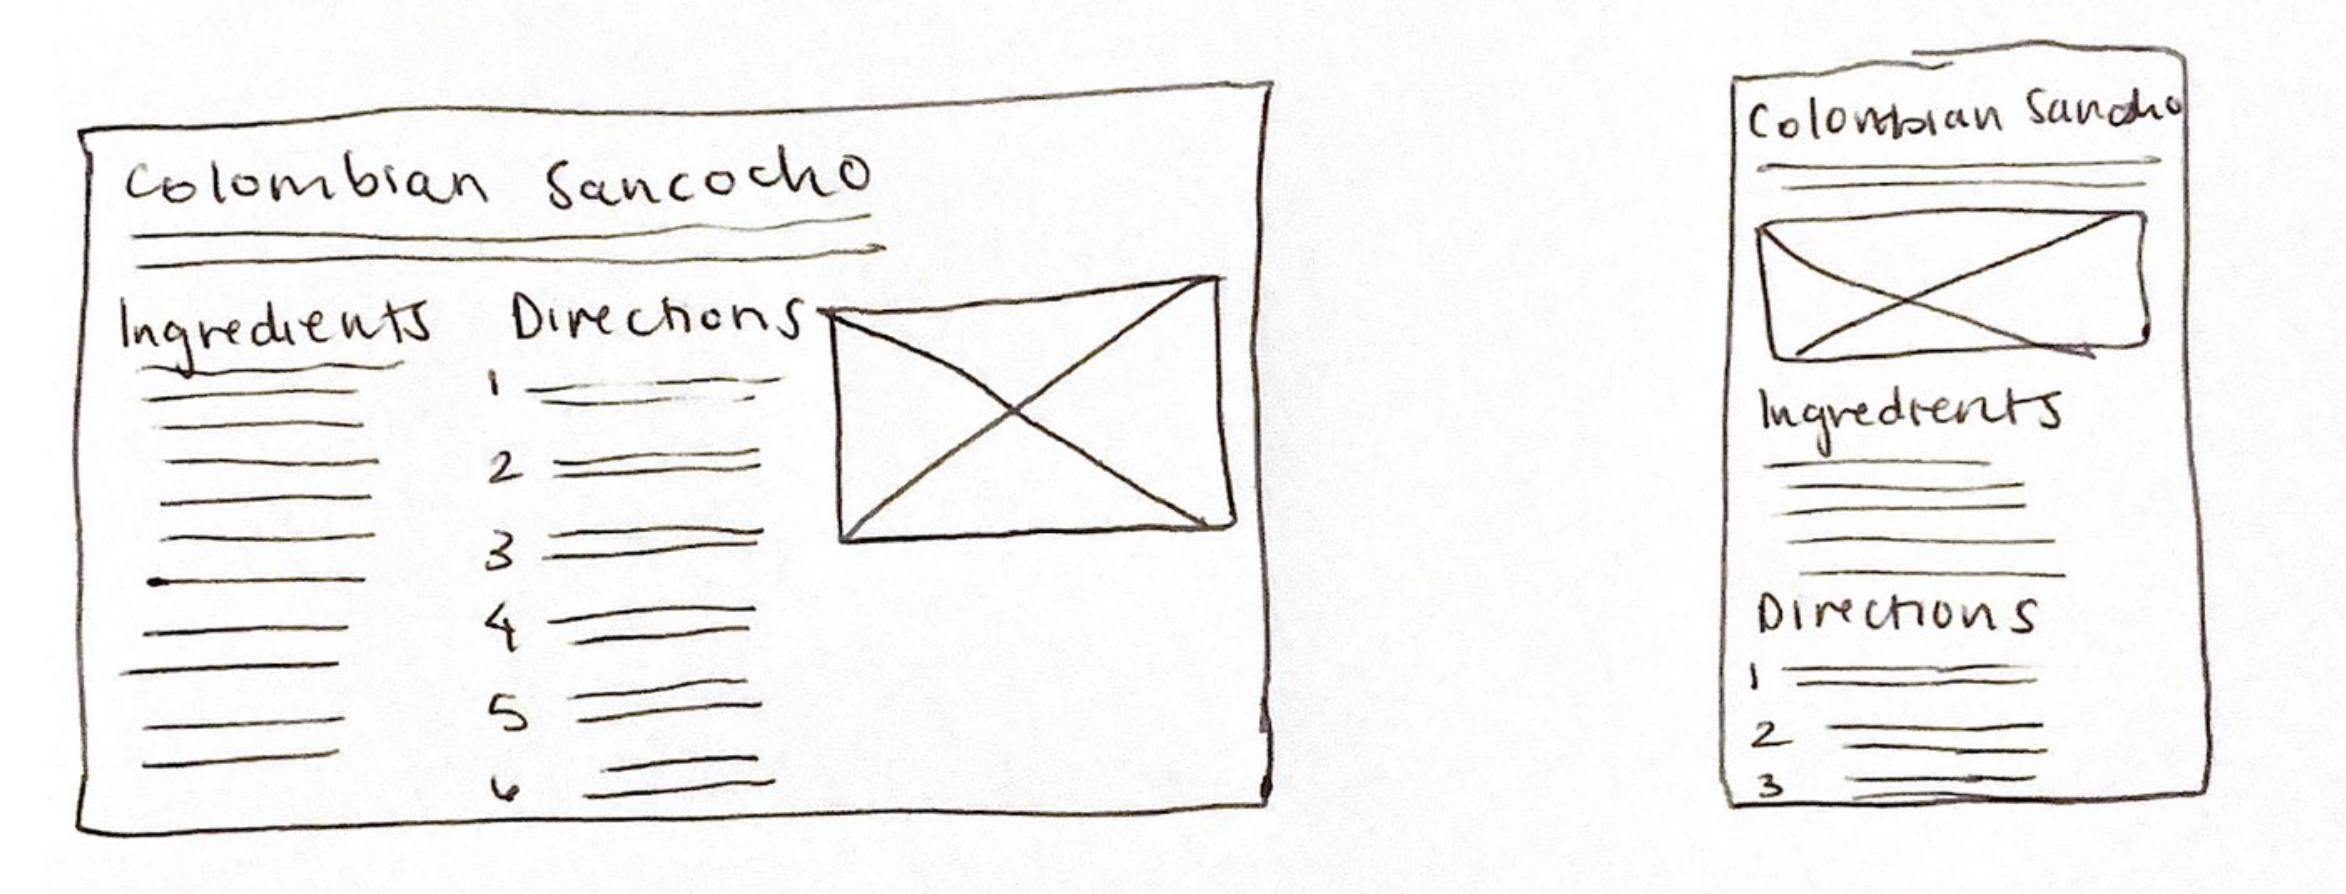 Colombian Sancocho
Ingredients
Directions
1
2
3
4
5
6
Colombian Sancocho
Ingredients
Directions
1
2
3